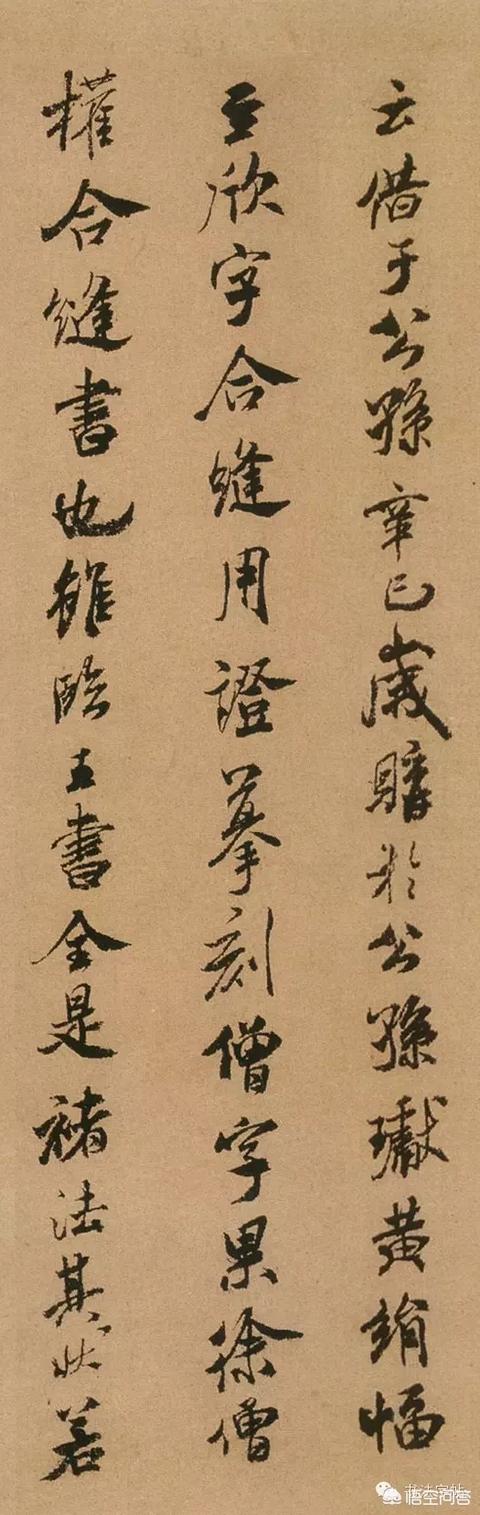 云借于公孫辛巳歲購於公孫瓛黃絹幅
至欣字合縫用證摹刻僧字果徐僧
權合縫書也雖臨王書全是褚法其狀若
悟空问答